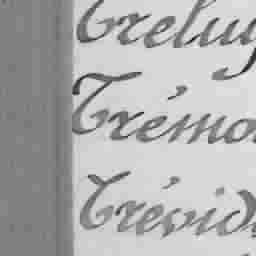 Treluy
Trémo
Trévid